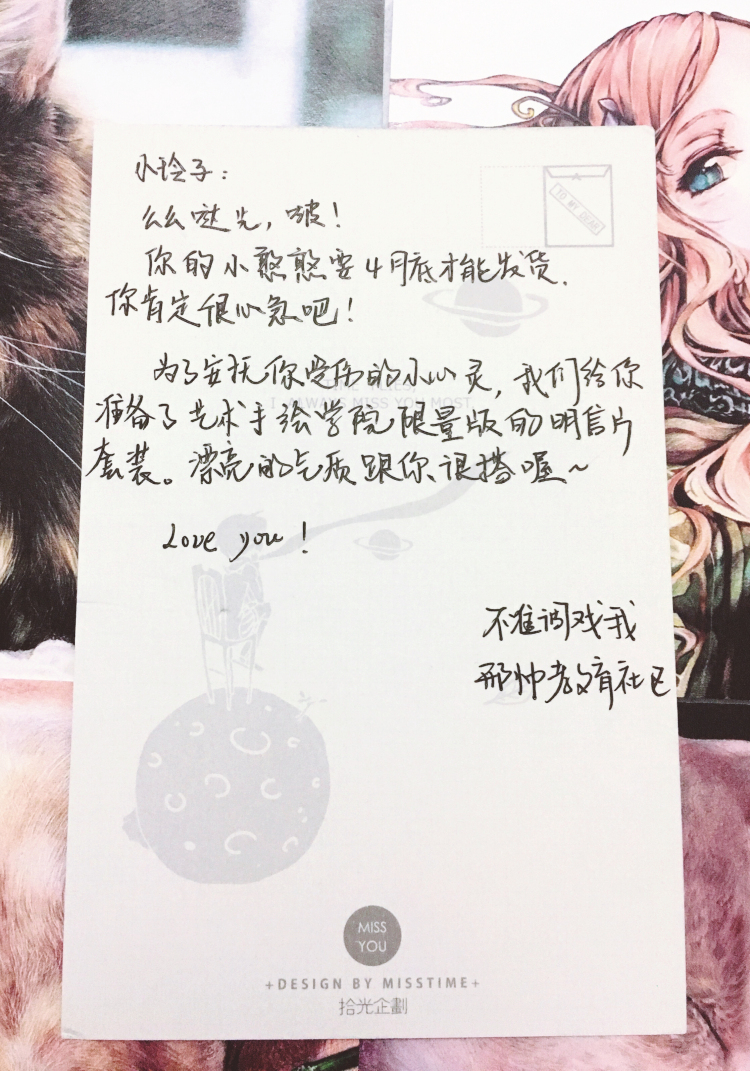 小玲子：
TO MY DEAR
么么哒先，啵！
你的小憨憨要4月底才能发货.
你肯定很心急吧！
为了安抚你受伤的小心灵，我们给你
I ALWAYS MISS YOU MOST
准备了艺术手绘学院限量版的明信片
套装。漂亮的气质跟你很搭喔~
Love you！
不准调戏我
邢帅教育社区
MISS
YOU
+DESIGN BY MISSTIME+
拾光企劃